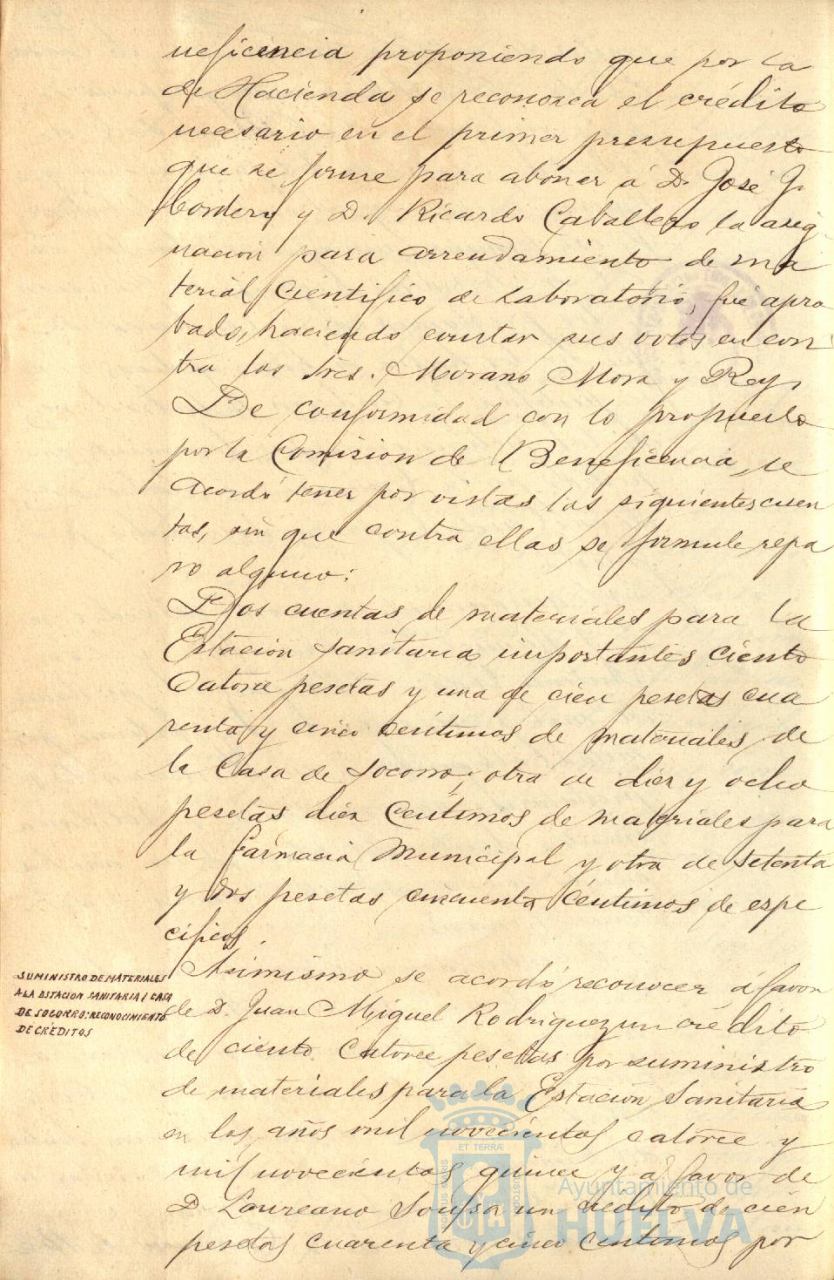 neficiencia proponiendo que por la
de Hacienda se reconozca el crédito
necesario en el primer presupuesto
que se forme para abonar á D. José J.
Cordero y D. Ricardo Caballero la asig
nación para arrendamiento de ma
terial científico de laboratorio, fué apro
bado, haciendo constar sus votos en con
tra los Sres. Morano, Mora y Rey,
De conformidad con lo propuesto
por la Comision de Beneficencia, se
acordó tener por vistas las siguientes cuen
tas, sin que contra ellas se formule repa
ro alguno:
Dos cuentas de materiales para la
Estación Sanitaria importantes ciento
Catorce pesetas y una de cien pesetas cua
renta y cinco céntimos de materiales de
la Casa de Socorro; otra de diez y ocho
pesetas diez Centimos de materiales para
la farmacia Municipal y otra de setenta
y dos pesetas cincuenta céntimos de espe
cificos.
SUMINISTRO DE MATERIALES
A LA ESTACION SANITARIA Y CASA
DE SOCORRO: RECONOCIMIENTO
DE CRÉDITOS
Asimismo se acordó reconocer á favor
de D. Juan Miguel Rodriguez un crédito
de ciento Catorce pesetas por suministro
de materiales para la Estación Sanitaria
en los años mil novecientos catorce y
mil novecientos quince y á favor de
D. Laureano Sousa un crédito de cien
pesetas cuarenta y cinco centimos por
ET TERRÆ
Ayuntamiento de
HUELVA